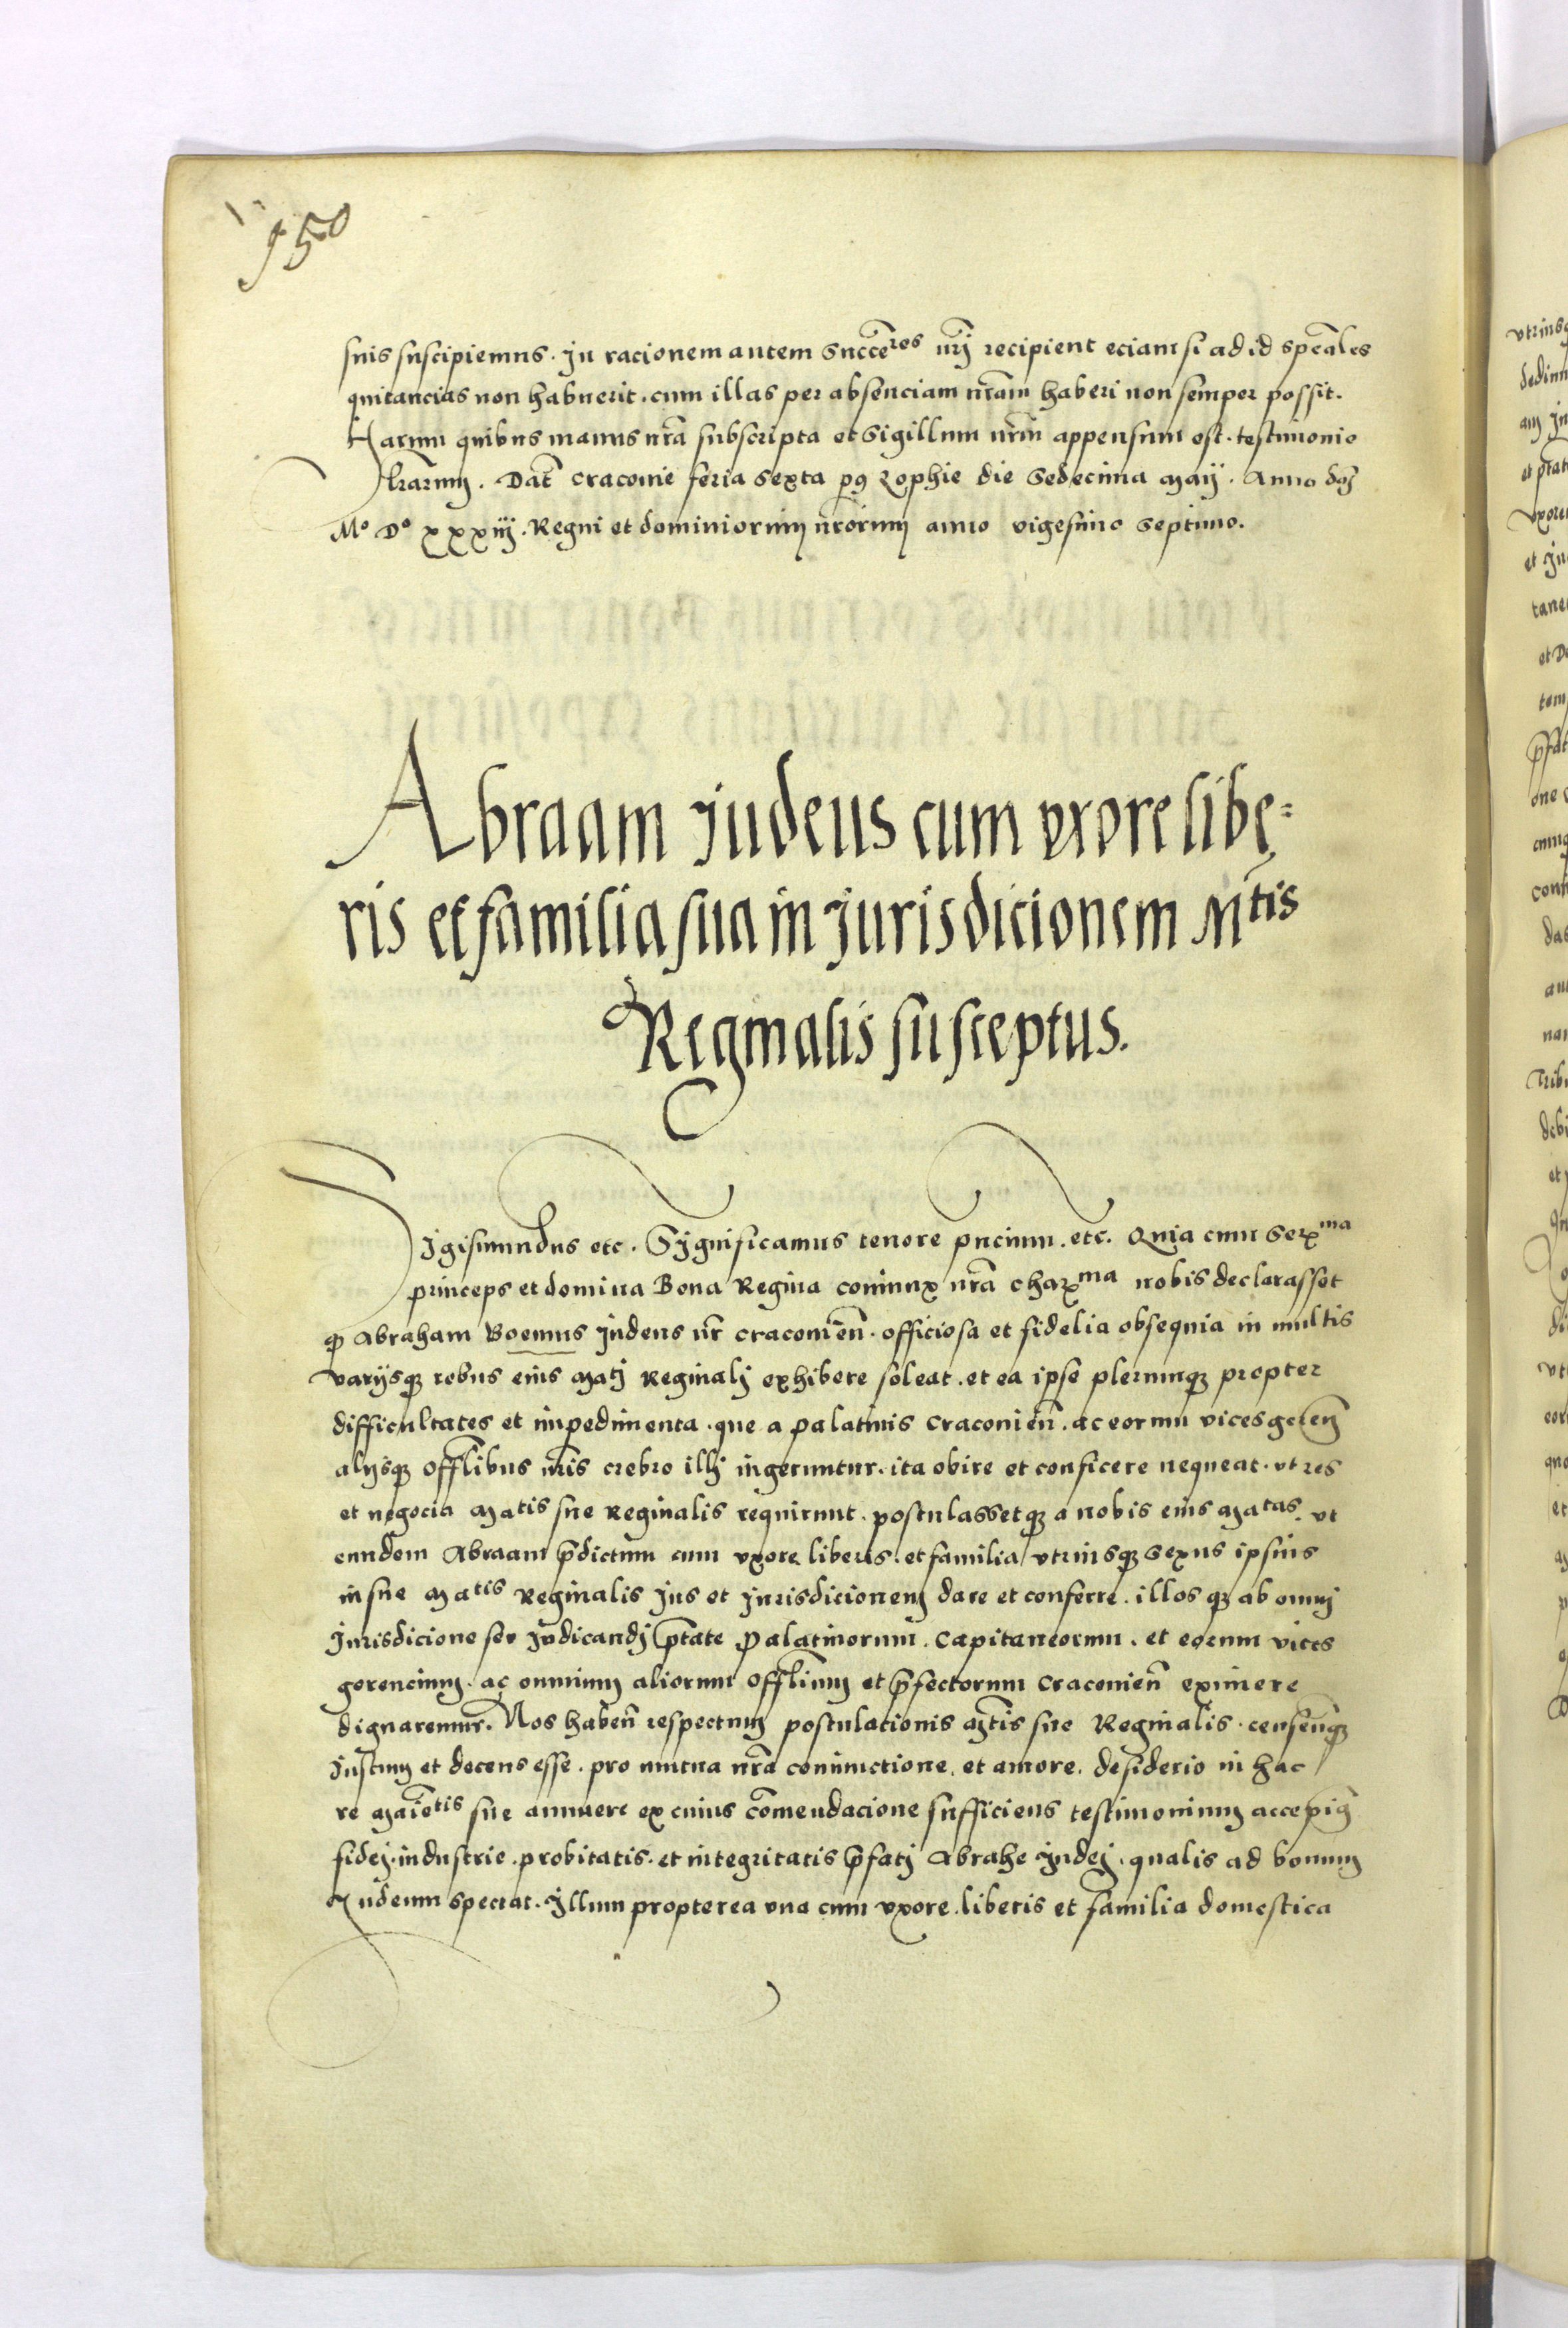 150
suis suscipiemus. In racionem autem succēres nrj recipient eciam si ad id speāles
quitancias non habuerit. cum illas per absenciam nrām haberi non semper possit.
Harum quibus manus nrā subscripta et Sigillum nrm̄ appensum est. testimonio
lrārum. Dat̄ Cracovie feria Sexta pꝯ Zophie die Sedecima Maij. Anno dnj
Mo Do xxxiij. Regni et dominiorum nrōrum anno vigesimo Septimo.
Abraam Judeus cum vxore libe=
ris et familia sua in Jurisdicionem Mtis
Reginalis susceptus.
Sigismundus etc. Sygnificamus tenore pncium. etc. Quia cum Serma
princeps et domina Bona Regina coniunx nrā charma nobis declarasset
qꝫ Abraham Boemus Judeus nr̄ Cracovien̄. officiosa et fidelia obsequia in multis
varijsqꝫ rebus eius Matj Reginalj exhibere soleat. et ea ipse plerumqꝫ propter
difficultates et impedimenta. que a Palatinis Cracovien̄. ac eorum vicesgeren̄
alijsqꝫ offlībus nrīs crebro illj ingeruntur. ita obire et conficere nequeat. vt res
et negocia Matis sue Reginalis requirunt. postulassetqꝫ a nobis eius Matas. vt
eundem Abraam pr̄dictum cum vxore liberis. et familia vtriusqꝫ Sexus ipsius
in sue Matis Reginalis Jus et Jurisdicionem dare et conferre. illosqꝫ ab omnj
Jurisdicione seu Judicandj ptāte Palatinorum. Capitaneorum. et eorum vices
gerencium. ac omnium aliorum offlīum et pr̄fectorum Cracovien̄ eximere
dignaremur. Nos haben̄ respectum postulationis Mtīs sue Reginalis. censen̄qꝫ
Justum et decens esse. pro mutua nrā coniunctione. et amore. desiderio in hac
re Maiētis sue annuere ex cuius cōmendacione sufficiens testimonium accepim̄
fidej. industrie. probitatis. et integritatis pr̄fatj Abrahe Judej. qualis ad bonum
Judeum spectat. Illum propterea vna cum vxore. liberis et familia domestica